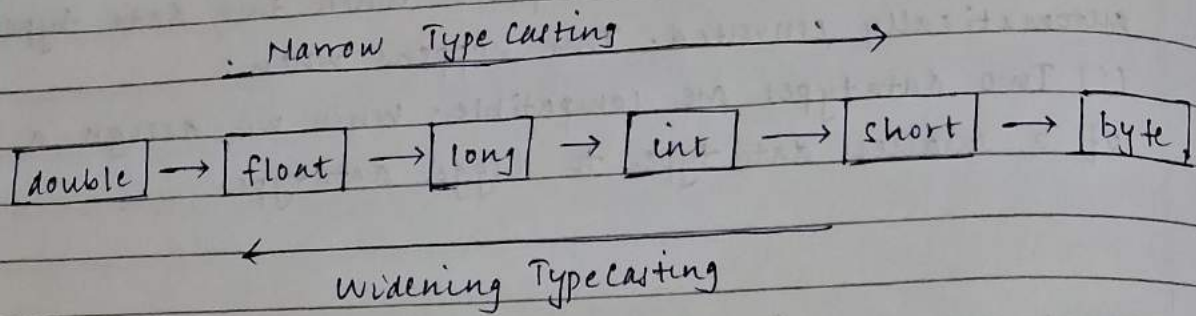 Narrow Type Casting
double → float → long → int → short → byte
Widening Typecasting